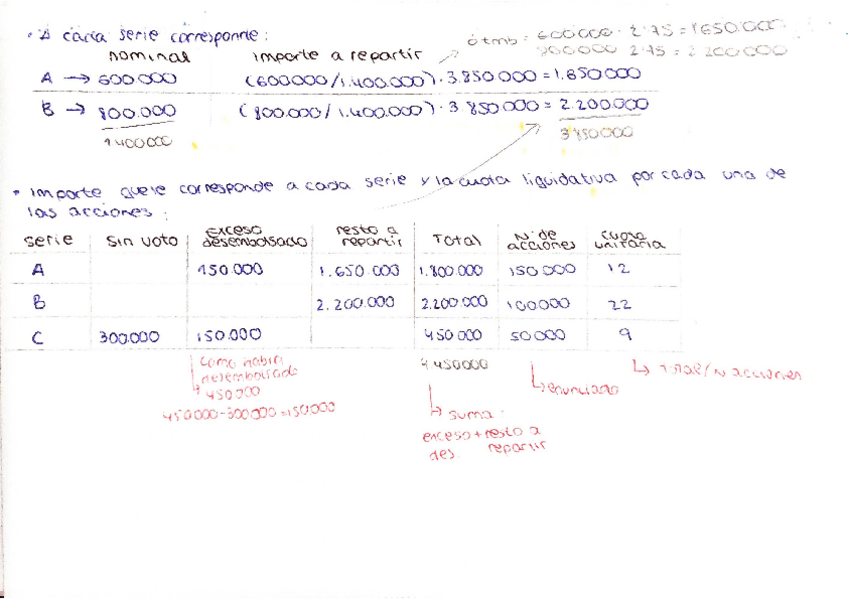 · A cada serie corresponde:
ó tmb: 600000 · 2'75 = 1650.000
800000 2'75 = 2.200000
nominal importe a repartir
A → 600.000 (600000/1.400.000) · 3.850.000 = 1.650.000
B → 800.000 (800.000/1.400.000) · 3 850.000 = 2.200.000
1400000 3850000
· Importe que le corresponde a cada serie y la cuota liquidativa por cada una de
las acciones:
serie sin voto exceso desembolsado resto a repartir Total Nº de acciones cuota unitaria
A 150.000 1.650.000 1.800.000 150000 12
B 2.200.000 2.200.000 100000 22
C 300.000 150.000 450000 50000 9
como había
desembolsado
450.000
450.000-300.000=150.000
4450000
suma:
exceso + resto a
des. repartir
enunciado
Total/N acciones